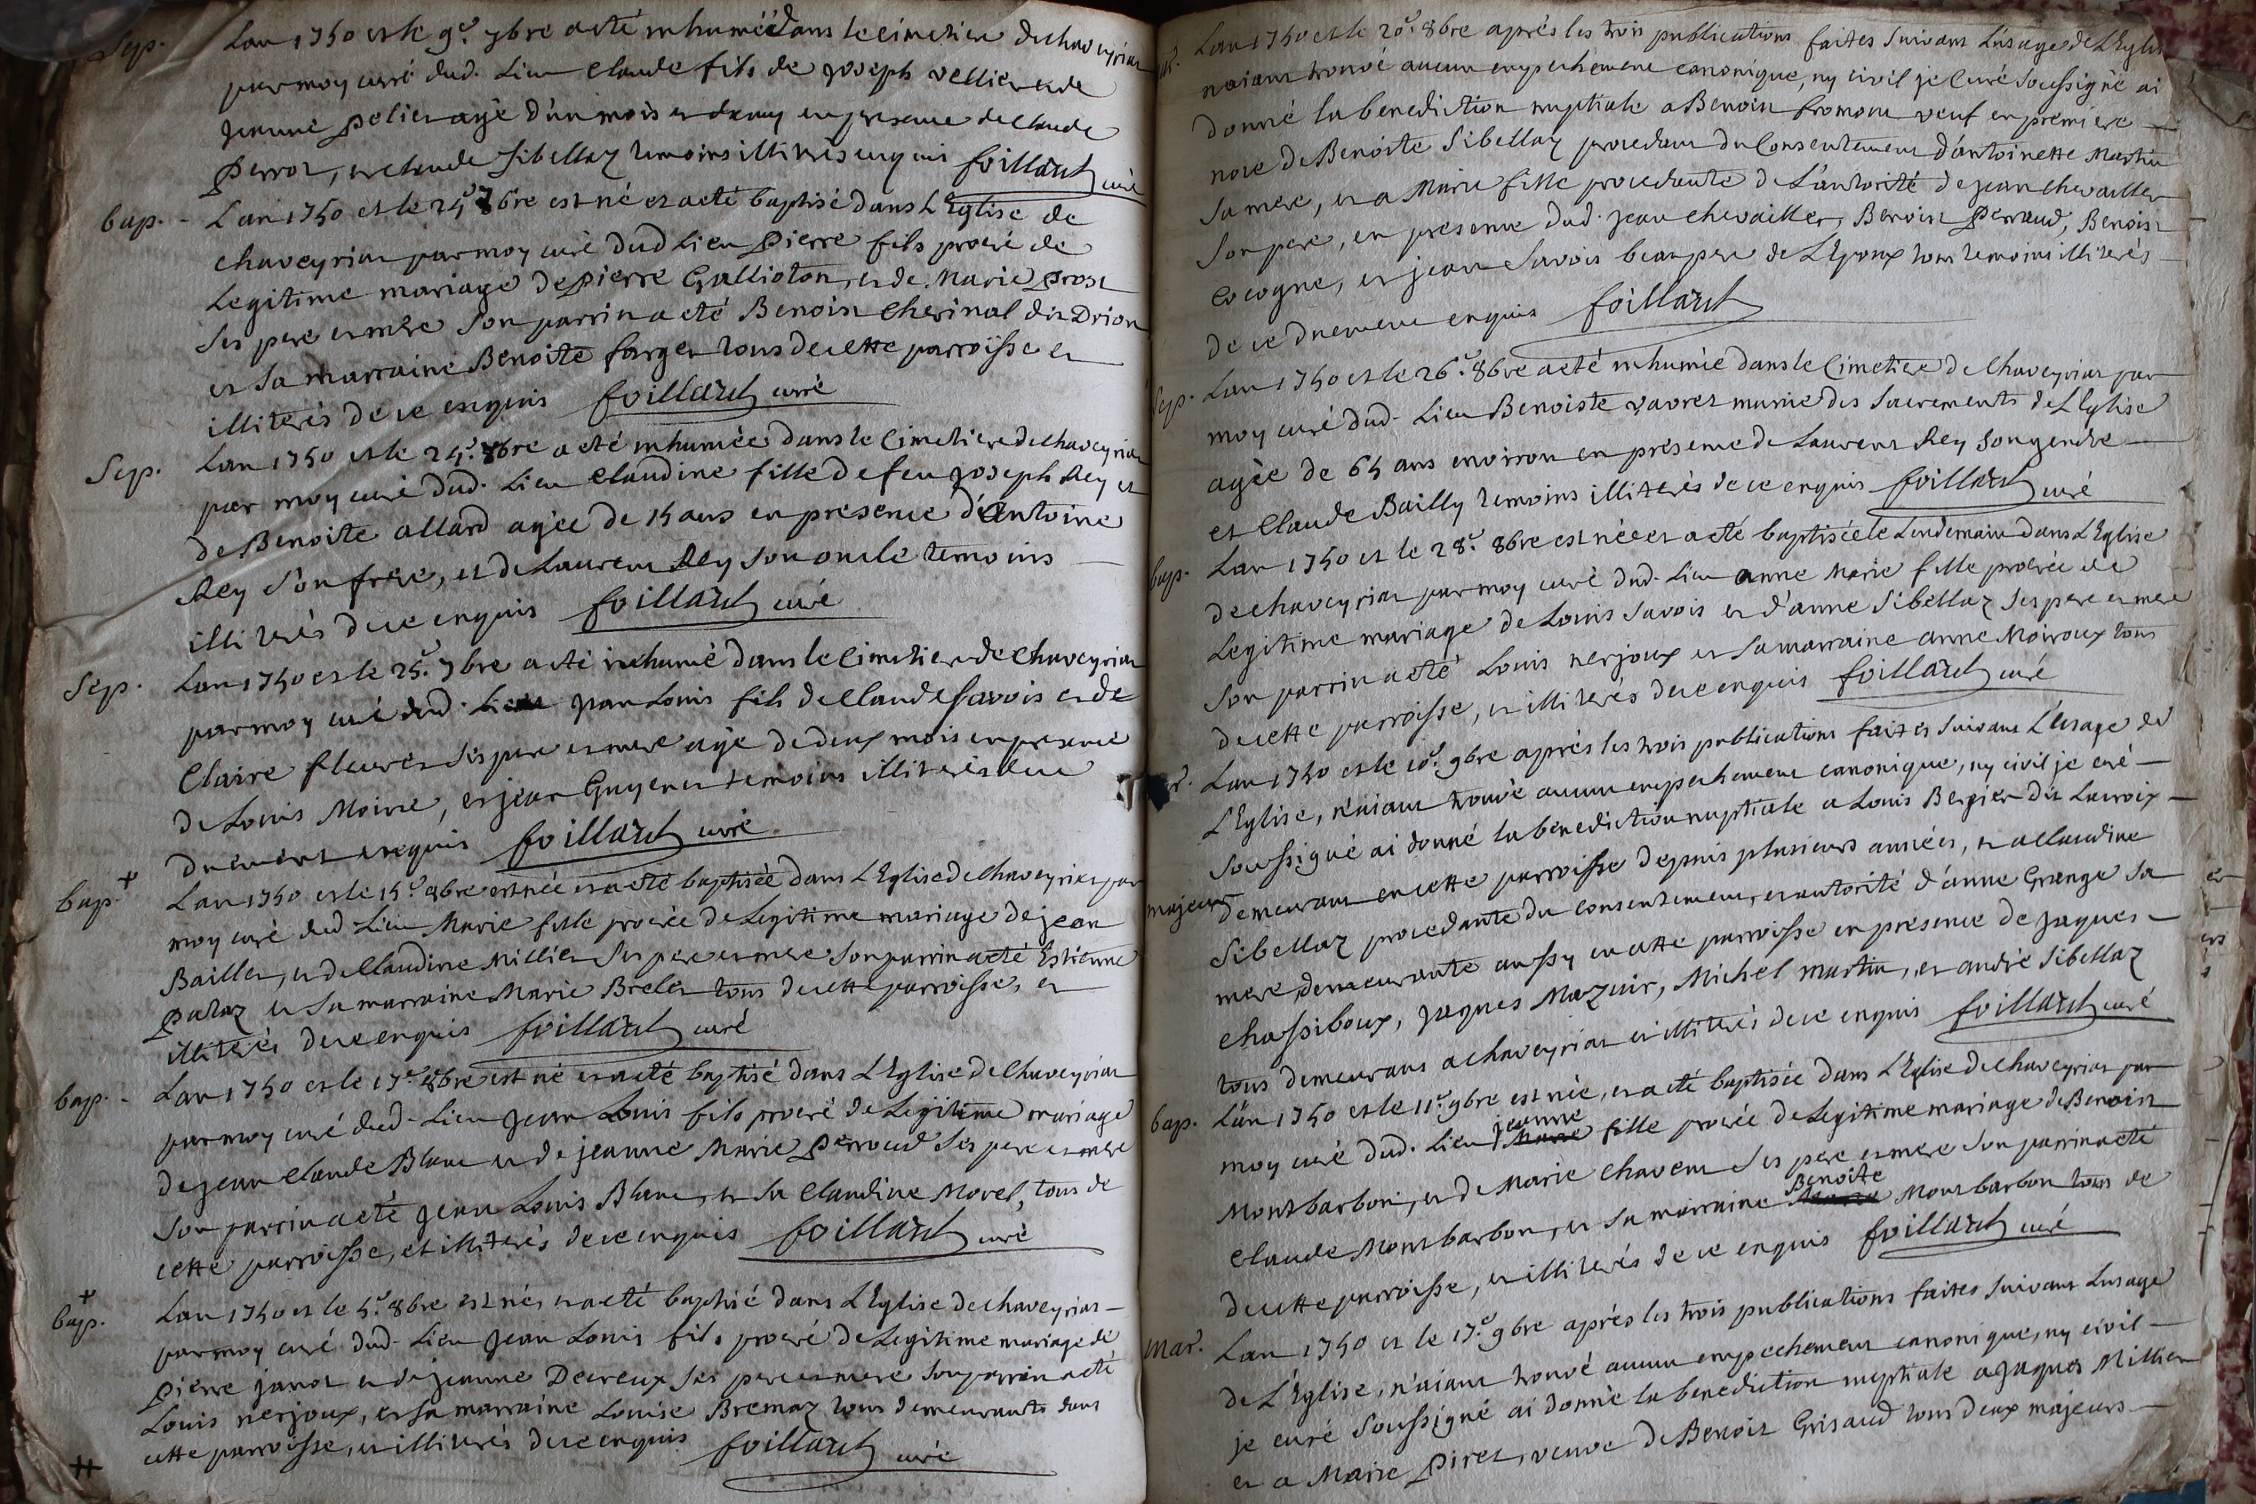 Sep. Lan 1750 et le 9e. 7bre a eté inhumée dans le cimetiere de chaveyriat
par moy curé dud. Lieu Claude fils de joseph vellier et de
jeanne pelier agé d'un mois et demy en presence de Claude
perrot, et claude sibellaz temoins illiterés enquis foillard curé
bap. - Lan 1750 et le 24e 7bre est né et a eté baptisé dans L'Eglise de
chaveyriat par moy curé dud Lieu pierre fils procré de
Legitime mariage de pierre Galliolon, et de Marie prost
ses pere et mere son parrin a eté Benoit cherinal dit Drion
et sa marraine Benoite farget tous de cette parroisse et
illiterés de ce enquis foillard curé
Sep. Lan 1750 et le 24e. 7bre a eté inhumée dans le Cimetiere de chaveyriat
par moy curé dud. Lieu Claudine fille de feu joseph Rey et
de Benoite allard agée de 15 ans en presence d'antoine
Rey son frere, et de Laurent Rey son oncle temoins
illiterés de ce enquis foillard curé
Sep. Lan 1750 et le 25e. 7bre a eté inhumé dans le Cimetiere de chaveyriat
par moy curé dud. Lieu jean Louis fils de Claude savois et de
Claire fleuret ses pere et mere agé de deux mois en presence
de Louis Moine, et jean Guyenet temoins illiterés de ce
duement enquis foillard curé
bap. + Lan 1750 et le 15e. 8bre est née et a eté baptisée dans L'Eglise de Chaveyriat par
moy curé dud Lieu Marie fille procrée de Legitime mariage de jean
Baillet, et de Claudine Millier ses pere et mere son parrin a eté Estienne
putaz et sa marraine Marie Brelet tous de cette parroisse, et
illiterés de ce enquis foillard curé
bap. - Lan 1750 et le 17e. 8bre est né et a eté baptisé dans L'Eglise de Chaveyriat
par moy curé dud. Lieu jean Louis fils procré de Legitime mariage
de jean Claude Blanc et de jeanne Marie perroud ses pere et mere
son parrin a eté jean Louis Blanc, et sa Claudine Morel, tous de
cette parroisse, et illiterés de ce enquis foillard curé
bap. + Lan 1750 et le 5e. 8bre est né, et a eté baptisé dans L'Eglise de chaveyriat -
par moy curé dud. Lieu jean Louis fils procré de Legitime mariage de
pierre janot et de jeanne Decreux ses pere et mere son parrin a eté
Louis nerjoux, et sa marraine Louise Bremaz tous demeurants dans
cette parroisse, et illiterés de ce enquis foillard curé
Lan 1750 et le 20e. 8bre aprés les trois publications faites suivant L'usage de L'Eglise
n'aiant trouvé aucun empechement canonique, ny civil je Curé soussigné ai
donné la benediction nuptiale a Benoit fromont veuf en premiere -
noce de Benoite sibellaz procedant du Consentement d'antoinette Martin
sa mere, et a Marie fille procedante de L'autorité de jean chevailler
son pere, en presence dud. jean chevailler, Benoist perraud, Benoist
Cocogne, et jean savois beaupere de L'Epoux tous temoins illiterés -
de ce duement enquis foillard
Sep. Lan 1750 et le 26e. 8bre a eté inhumée dans le Cimetiere de Chaveyriat par
moy curé dud. Lieu Benoiste vavret munie des sacrements de L'Eglise
agée de 65 ans environ en presence de Laurent Rey son gendre -
et Claude Bailly temoins illiterés de ce enquis foillard curé
bap. Lan 1750 et le 28e. 8bre est née et a eté baptisée le Lendemain dans L'Eglise
de chaveyriat par moy curé dud. Lieu anne Marie fille procrée de
Legitime mariage de Louis savois et d'anne sibellaz ses pere et mere
son parrin a eté Louis nerjoux et sa marraine anne Moiroux tous
de cette parroisse, et illiterés de ce enquis foillard curé
Lan 1750 et le 10e. 9bre aprés les trois publications faites suivant L'usage de
L'Eglise, n'aiant trouvé aucun empechement canonique, ny civil je cré -
soussigné ai donné la benediction nuptiale a Louis Bergier dit Lacroix -
majeur demeurant en cette parroisse depuis plusieurs années, et a Claudine
sibellaz procedante du consentement, et autorité d'anne Grange sa
mere demeurante aussy en cette parroisse en presence de jaques -
chassiboux, jaques Mazuir, Michel Martin, et andré sibellaz
tous demeurans a chaveyriat et illiterés de ce enquis foillard curé
bap. Lan 1750 et le 11e. 9bre est née, et a eté baptisée dans L'Eglise de chaveyriat par
moy curé dud. Lieu jeanne fille procrée de Legitime mariage de Benoist
Montbarbon, et de Marie chavent ses pere et mere son parrin a eté
Claude Montbarbon, et sa marraine Benoite Montbarbon tous de
de cette parroisse, et illiterés de ce enquis foillard curé
Mar. Lan 1750 et le 17e. 9bre aprés les trois publications faites suivant L'usage
de L'Eglise, n'aiant trouvé aucun empechement canonique, ny civil -
je curé soussigné ai donné la benediction nuptiale a jaques Millier
et a Marie piret, veuve de Benoist Grisaud tous deux majeurs -